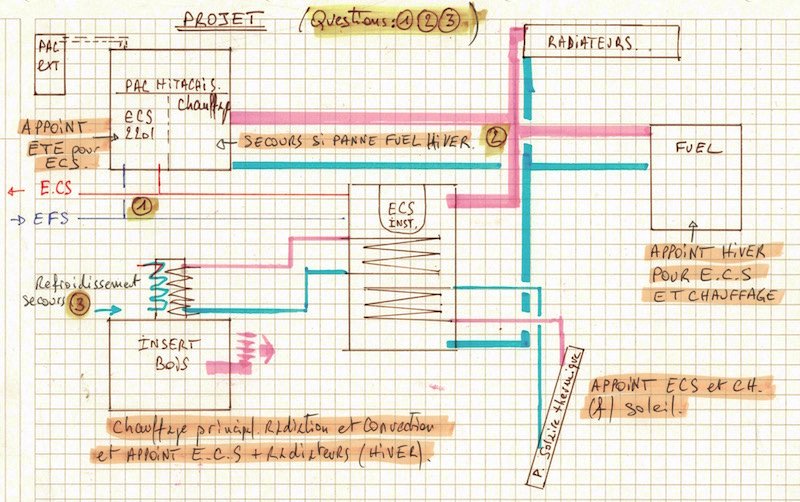 PROJET
(Questions: ① ② ③)
PAC
EXT
RADIATEURS..
PAC HITACHIS.
chauffage
ECS
220l
APPOINT
ÉTÉ pour
ECS.
SECOURS SI PANNE FUEL HIVER.
②
FUEL
E.CS
①
EFS
ECS
INST.
APPOINT HIVER
POUR E.C.S
ET CHAUFFAGE
Refroidissement
secours ③
INSERT
BOIS
P. Solaire thermique
APPOINT ECS et CH.
(f) soleil.
Chauffage principal. Radiation et Convection
et APPOINT E.C.S + RADIATEURS (HIVER).